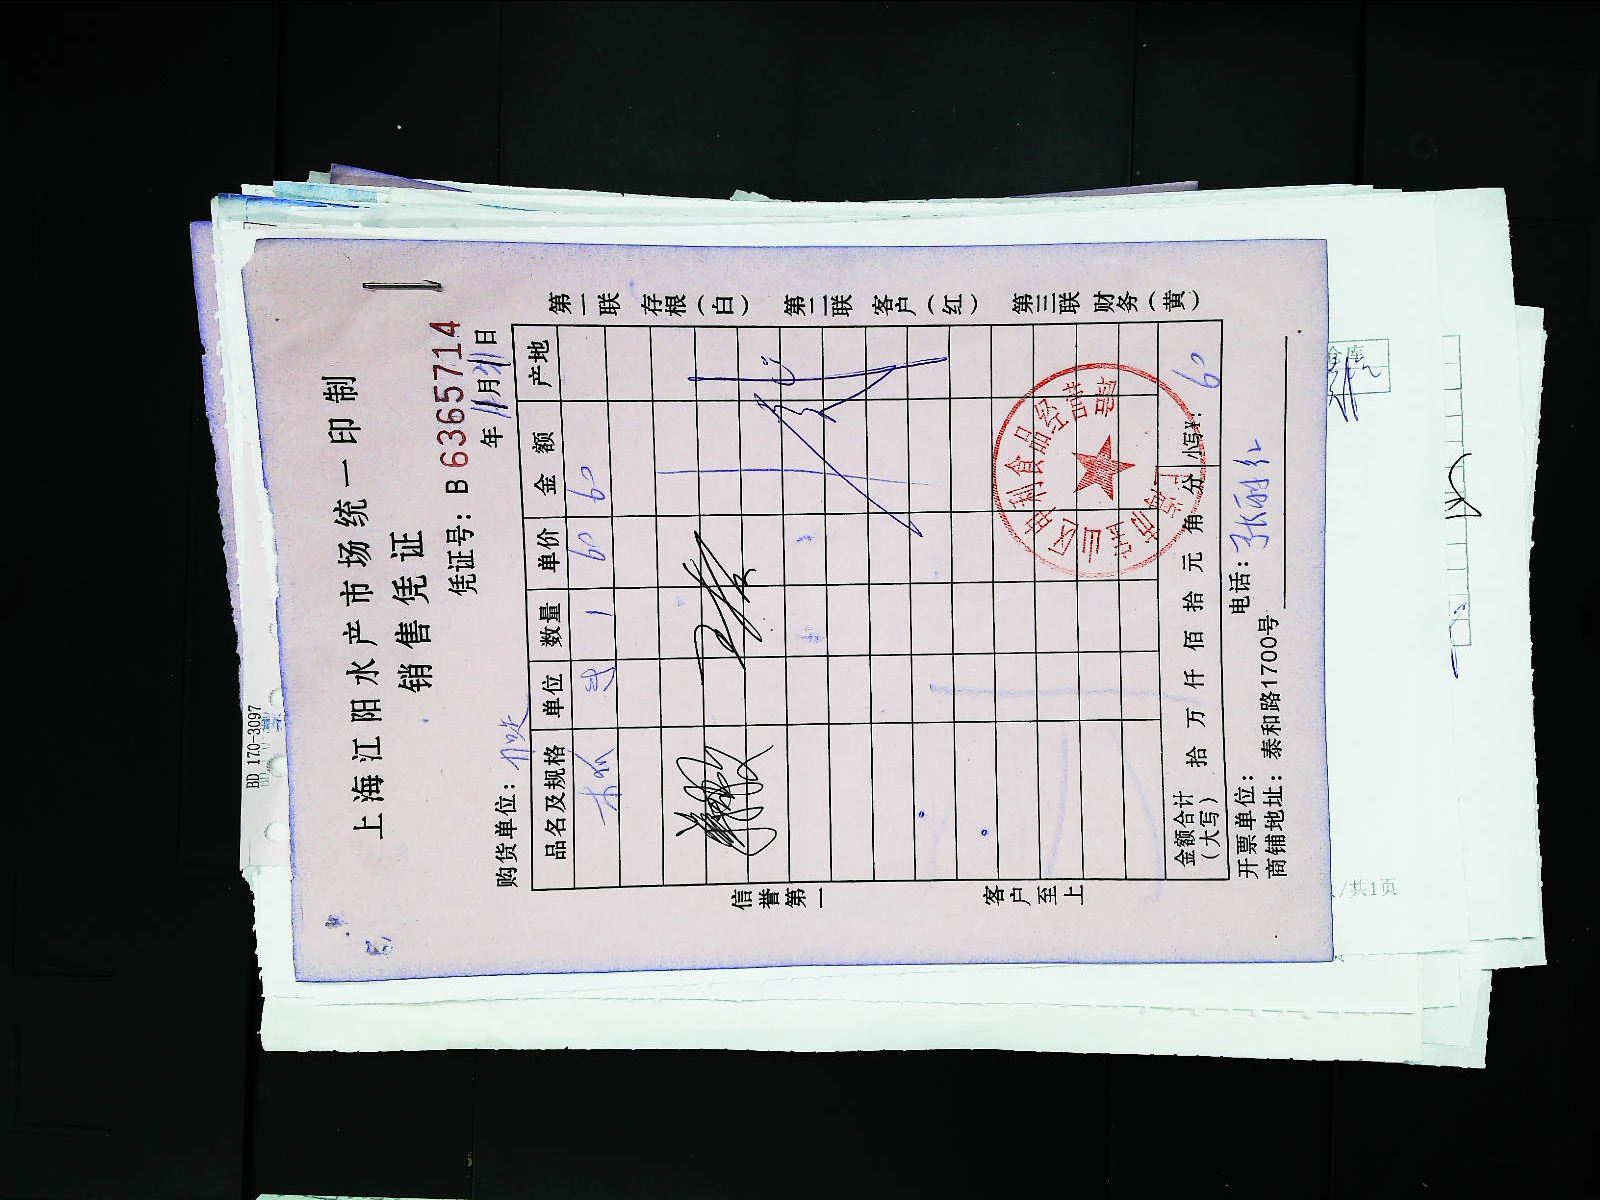 上海江阳水产市场统一印制
销售凭证
凭证号：B 6365714
年 11月21日
购货单位：
品名及规格 单位 数量 单价 金额 产地
1 60 60
信誉第一
客户至上
第一联 存根（白） 第二联 客户（红） 第三联 财务（黄）
金额合计（大写） 拾 万 仟 佰 拾 元 角 分 小写¥: 60
开票单位： 电话：张丽红
商铺地址：泰和路1700号
食品经营部
BD 170-3097
/共1页